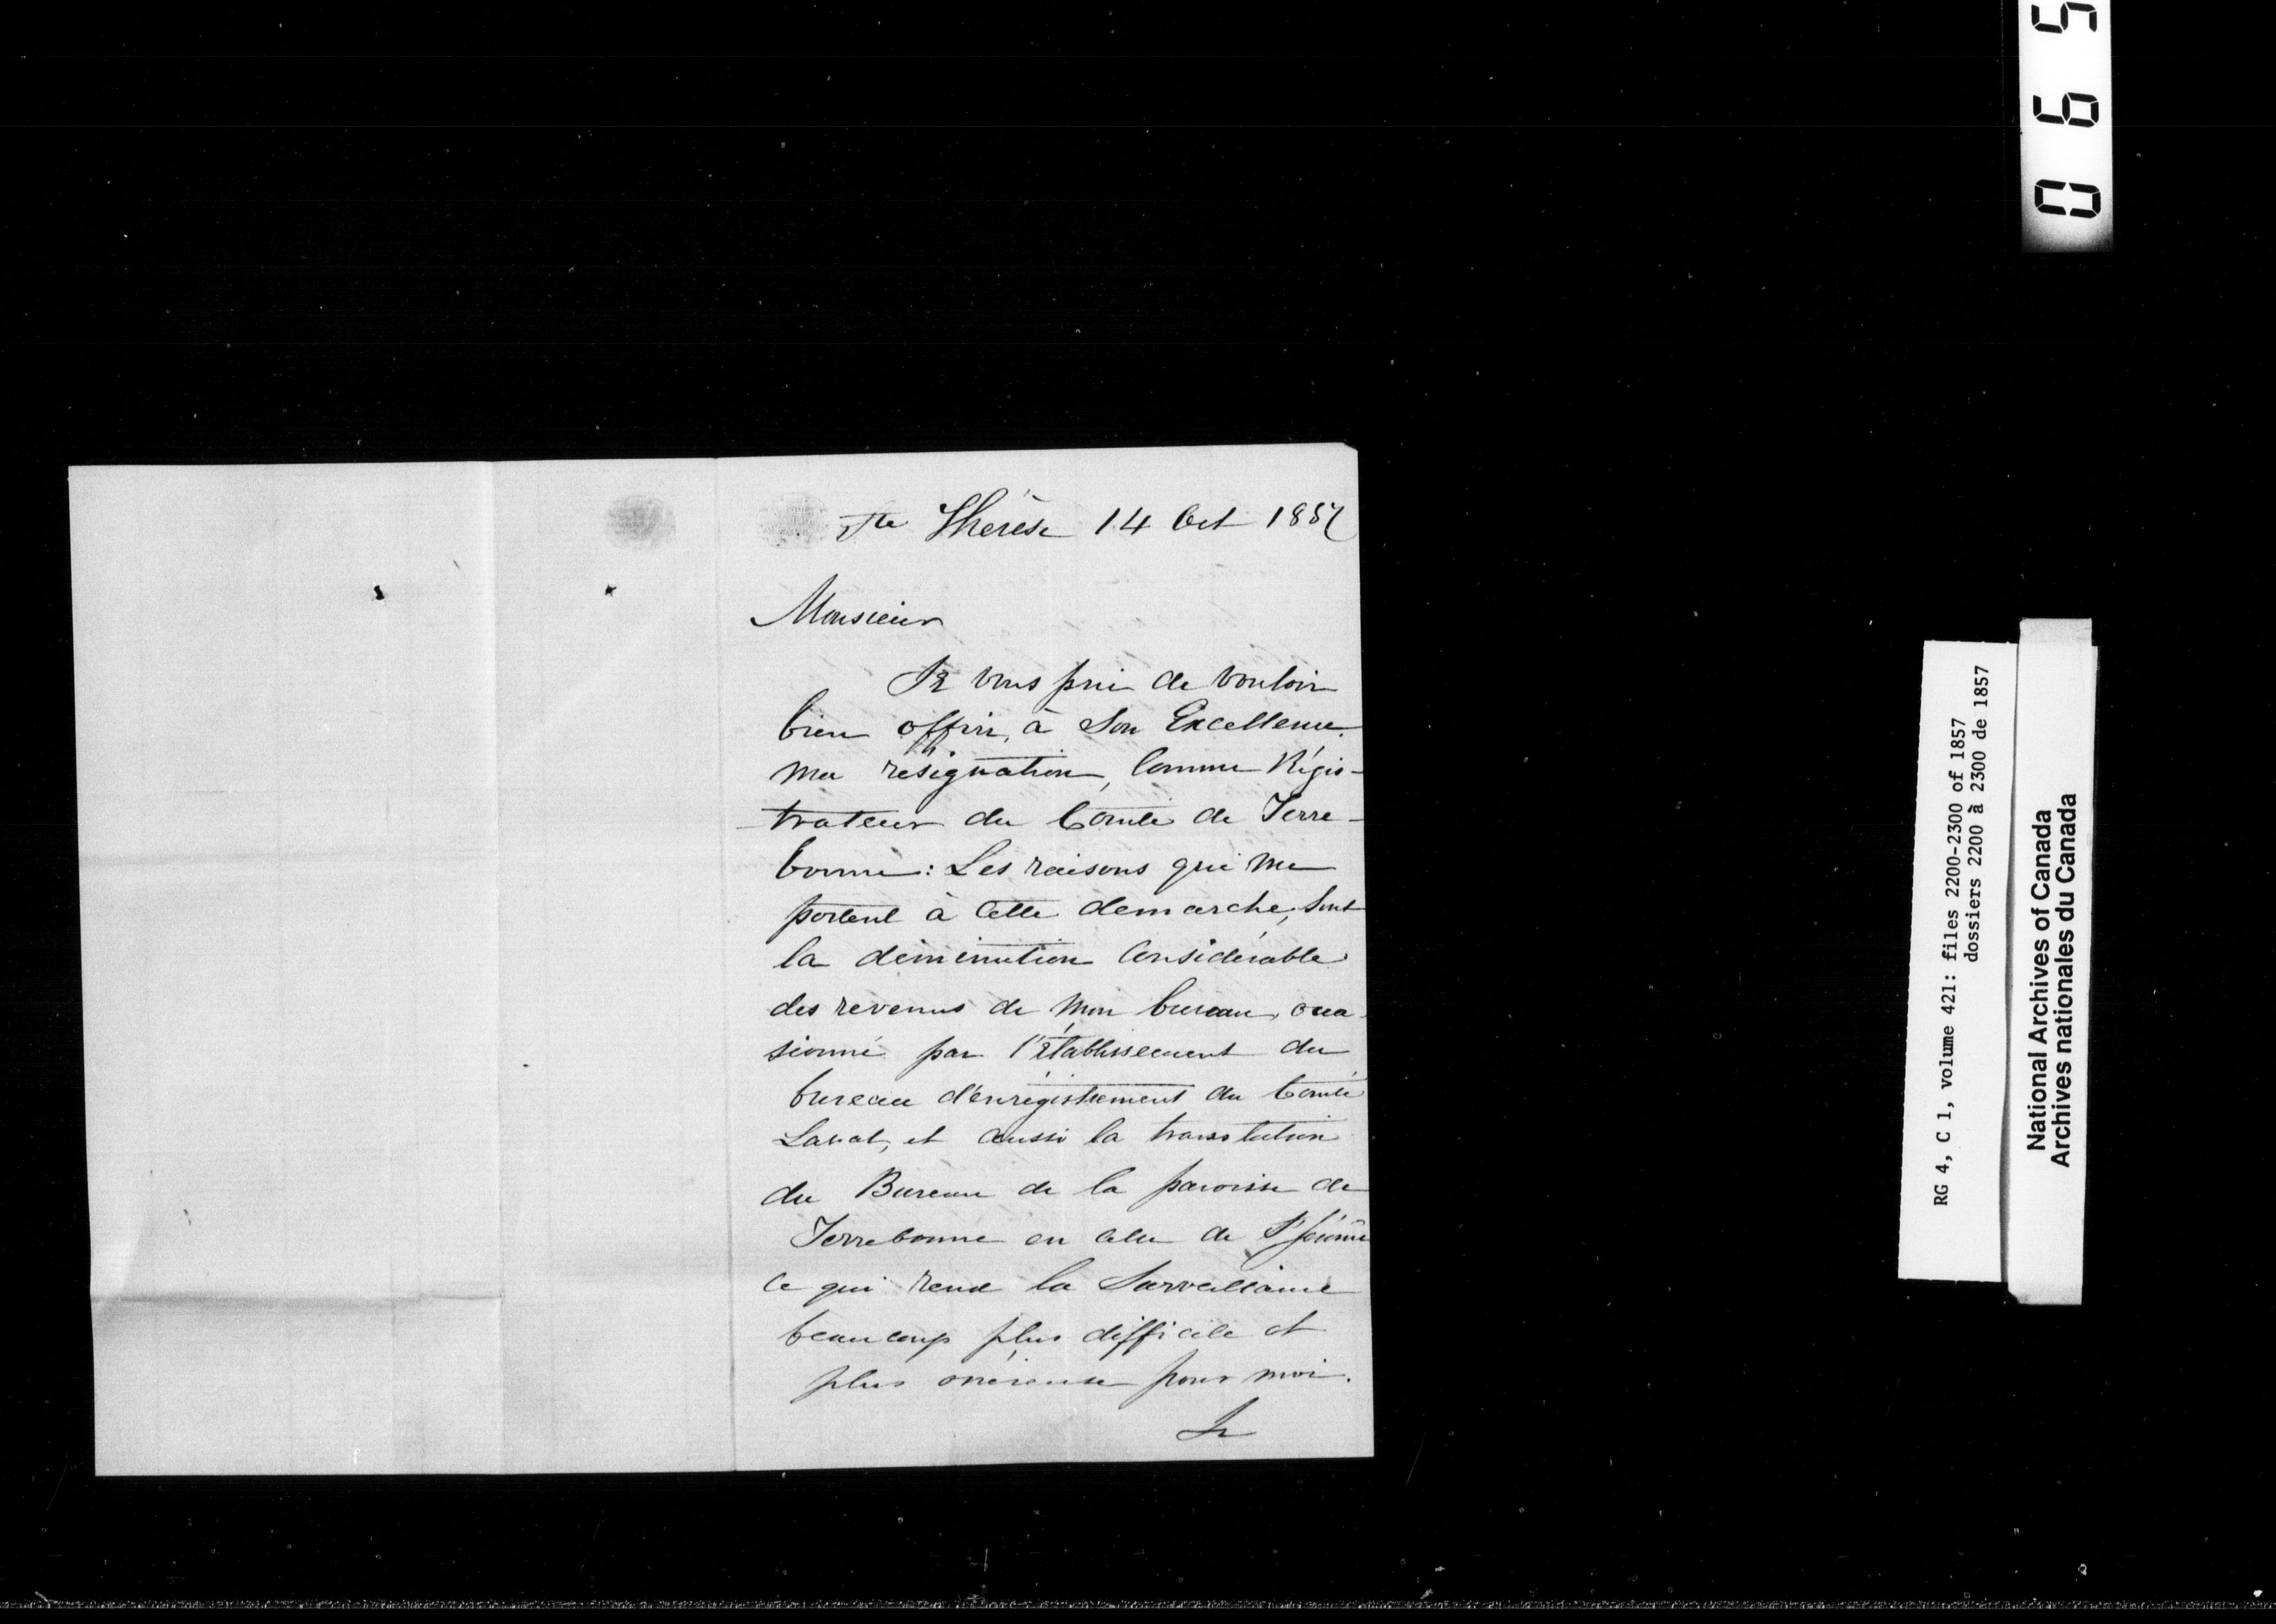 Ste Thérèse 14 Oct 1857
Monsieur
Je vous prie de vouloir
bien offrir, à Son Excellence
ma résignation, comme Régis-
trateur du Comté de Terre-
bonne: Les raisons qui me
portent à cette demarche, sont
la diminution considérable
des revenus de mon bureau, occa
sionné par l'établissement du
bureau d'enrégistrement du Comté
Laval, et aussi la translation
du Bureau de la paroisse de
Terrebonne en celle de St Jérôme
ce qui rend la surveillance
beaucoup plus difficile et
plus onéreuse pour moi.
Je
065
RG 4, C 1, volume 421: files 2200-2300 of 1857
dossiers 2200 à 2300 de 1857
National Archives of Canada
Archives nationales du Canada